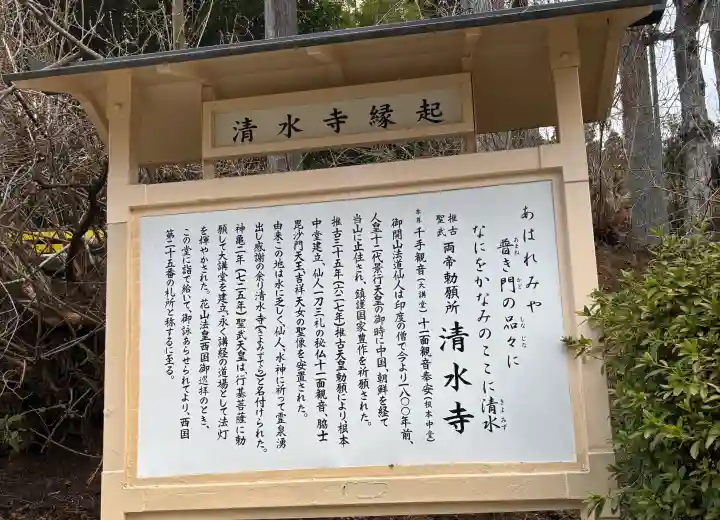 清水寺縁起
あはれみや
普き門の品々に
あまね かど しなじな
なにをかなみのここに清水
きよみず
推古
聖武 両帝勅願所 清水寺
本尊 千手観音(大講堂)十一面観音奉安(根本中堂)
御開山法道仙人は印度の僧で今より一八〇〇年前、
人皇十二代景行天皇の御時に中国、朝鮮を経て
当山に止住され、鎮護国家豊作を祈願された。
推古三十五年(六二七年)推古天皇勅願により根本
中堂建立、仙人一刀三礼の秘仏十一面観音、脇士
毘沙門天王、吉祥天女の聖像を安置された。
由来この地は水に乏しく仙人、水神に祈って霊泉湧
出し感謝の余り清水寺(きよみずでら)と名付けられた。
神亀二年(七二五年)聖武天皇は、行基菩薩に勅
願して大講堂を建立、永く講経の道場として法灯
を輝やかされた。花山法皇西国御巡拝のとき、
この堂に詣で給いて、御詠あらせられてより、西国
第二十五番の札所と称するに至る。